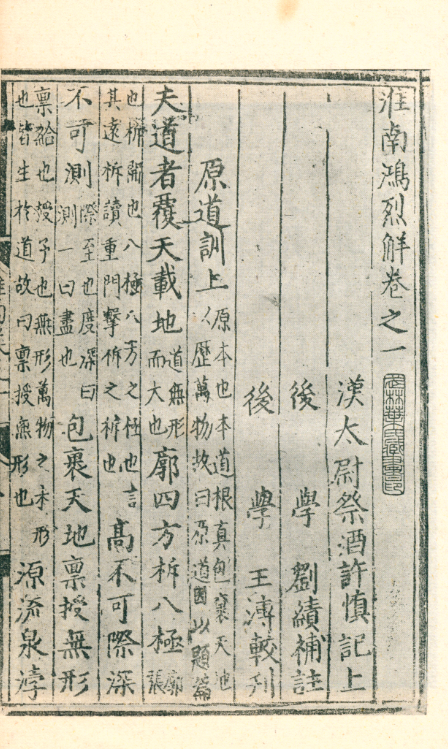 淮南鴻烈解卷之一
漢太尉祭酒許慎記上
後學劉績補註
後學王溥較刋
原道訓上原本也本道根真包裹天地以歷萬物故曰原道因以題篇
夫道者覆天載地道無形而大也廓四方柝八極廓張
也柝開也八極八方之極也言其遠柝讀重門擊柝之柝也高不可際深
不可測際至也度深曰測一曰盡也包裹天地禀授無形
禀給也授予也無形萬物之未形也皆生於道故曰禀授無形也源流泉浡